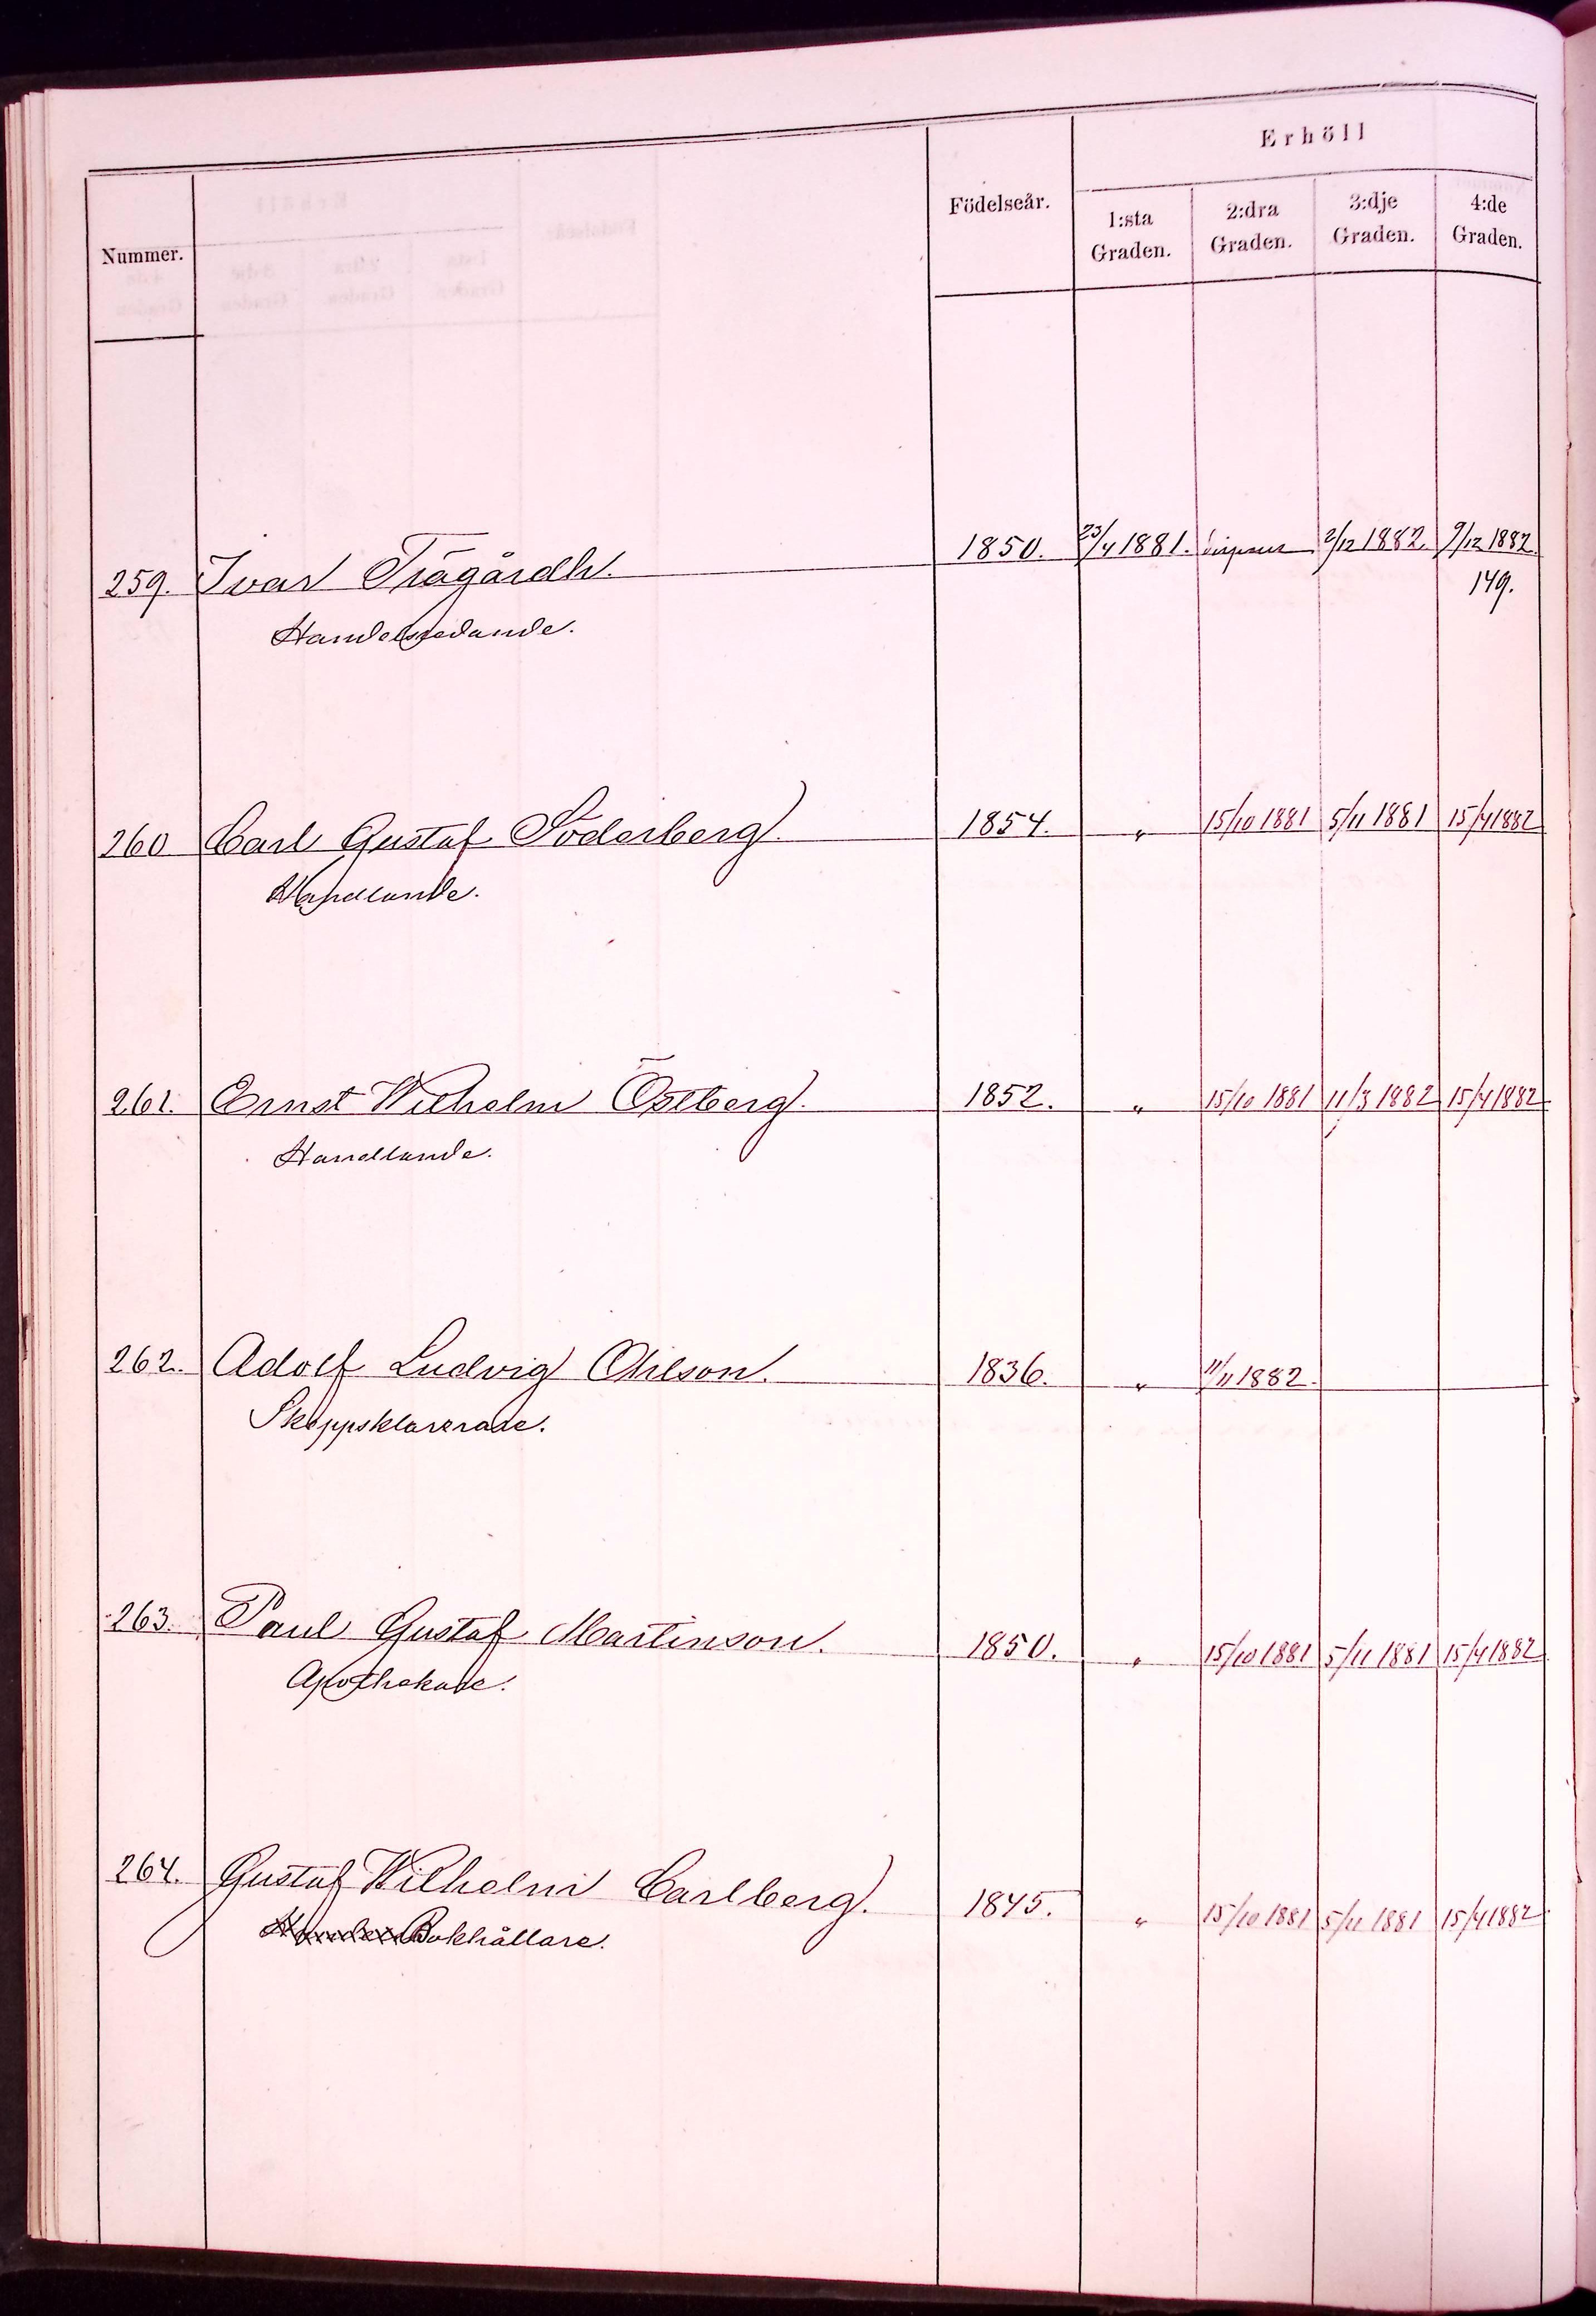 Erhöll
Nummer. Födelseår. 1:sta Graden. 2:dra Graden. 3:dje Graden. 4:de Graden.
259. Ivar Trägårdh. 1850. 23/4 1881. 2/12 1882. 9/12 1882.
149.
Handelsredande.
260 Carl Gustaf Söderberg. 1854. " 15/10 1881 5/11 1881 15/4 1882
Handlande.
261. Ernst Wilhelm Östberg. 1852. " 15/10 1881 11/3 1882 15/4 1882
Handlande.
262. Adolf Ludvig Ohlson. 1836. " 11/11 1882.
Skeppsklarerare.
263. Paul Gustaf Martinson. 1850. " 15/10 1881 5/11 1881 15/4 1882
Apothekare.
264. Gustaf Wilhelm Carlberg. 1845. " 15/10 1881 5/11 1881 15/4 1882
Bokhållare.